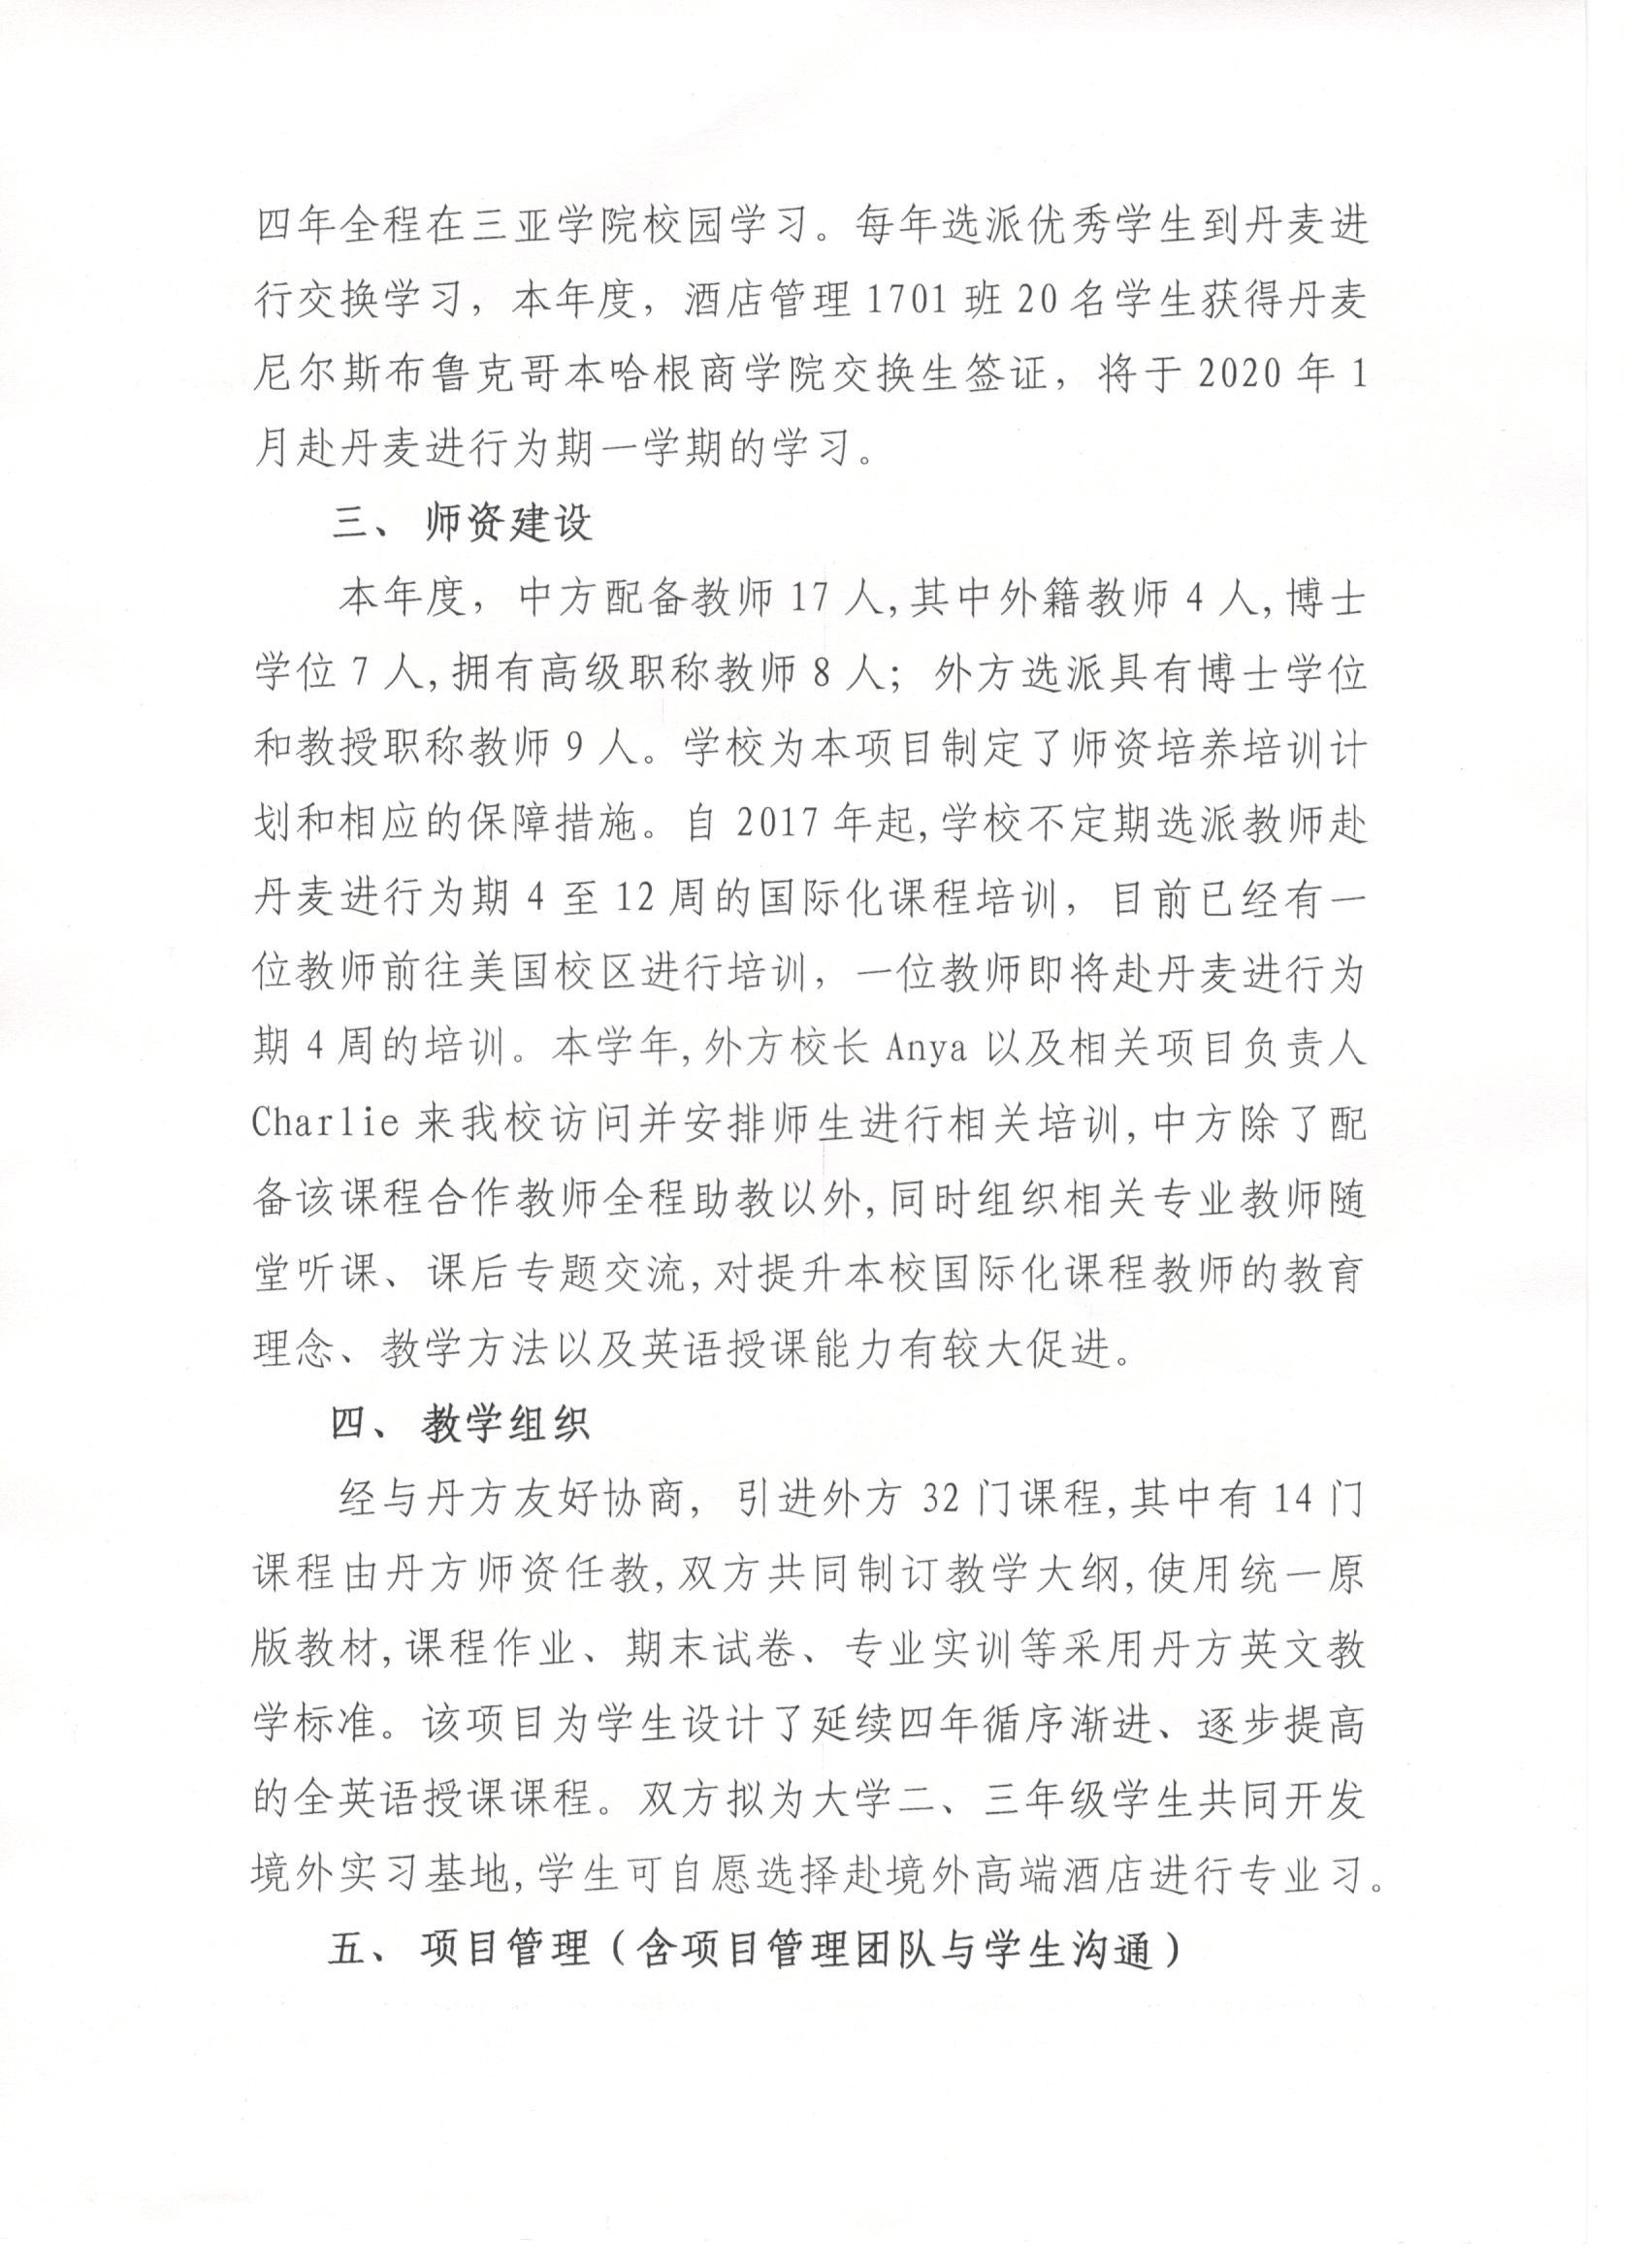 四年全程在三亚学院校园学习。每年选派优秀学生到丹麦进
行交换学习，本年度，酒店管理1701班20名学生获得丹麦
尼尔斯布鲁克哥本哈根商学院交换生签证，将于2020年1
月赴丹麦进行为期一学期的学习。
三、师资建设
本年度，中方配备教师17人,其中外籍教师4人,博士
学位7人,拥有高级职称教师8人；外方选派具有博士学位
和教授职称教师9人。学校为本项目制定了师资培养培训计
划和相应的保障措施。自2017年起,学校不定期选派教师赴
丹麦进行为期4至12周的国际化课程培训，目前已经有一
位教师前往美国校区进行培训，一位教师即将赴丹麦进行为
期4周的培训。本学年,外方校长Anya以及相关项目负责人
Charlie来我校访问并安排师生进行相关培训,中方除了配
备该课程合作教师全程助教以外,同时组织相关专业教师随
堂听课、课后专题交流,对提升本校国际化课程教师的教育
理念、教学方法以及英语授课能力有较大促进。
四、教学组织
经与丹方友好协商，引进外方32门课程,其中有14门
课程由丹方师资任教,双方共同制订教学大纲,使用统一原
版教材,课程作业、期末试卷、专业实训等采用丹方英文教
学标准。该项目为学生设计了延续四年循序渐进、逐步提高
的全英语授课课程。双方拟为大学二、三年级学生共同开发
境外实习基地,学生可自愿选择赴境外高端酒店进行专业习。
五、项目管理（含项目管理团队与学生沟通）